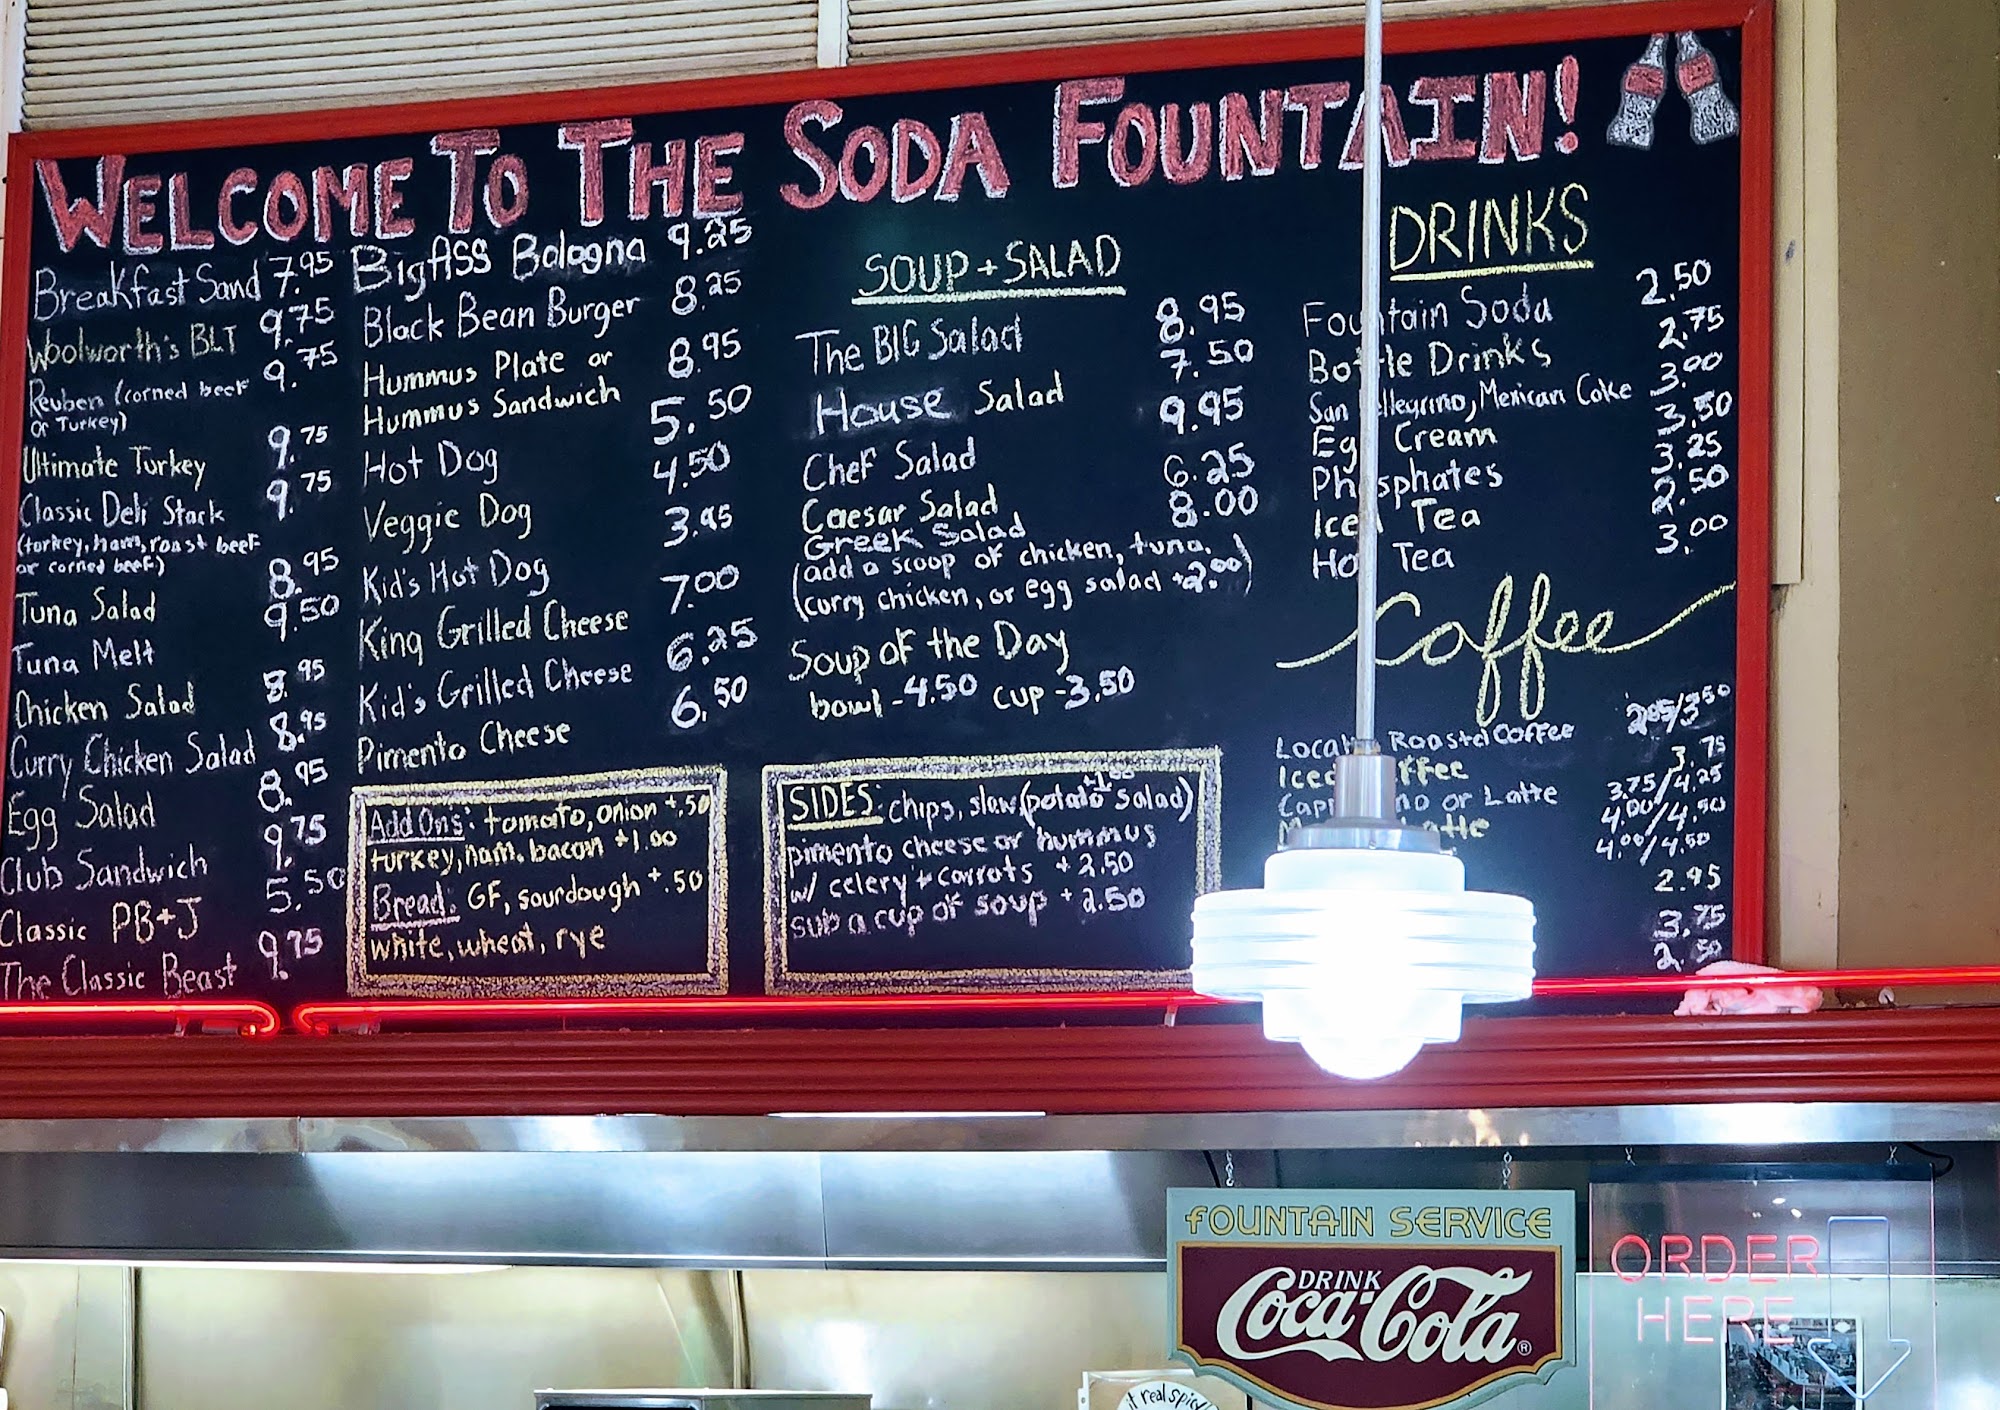 WELCOME TO THE SODA FOUNTAIN!
Breakfast Sand 7.95
Woolworth's BLT 9.75
Reuben (corned beef 9.75
or Turkey)
Ultimate Turkey 9.75
Classic Deli Stack 9.75
(turkey, ham, roast beef
or corned beef)
Tuna Salad 8.95
Tuna Melt 9.50
Chicken Salad 8.95
Curry Chicken Salad 8.95
Egg Salad 8.95
Club Sandwich 9.75
Classic PB+J 5.50
The Classic Beast 9.75
BigASS Bologna 9.25
Black Bean Burger 8.25
Hummus Plate or 8.95
Hummus Sandwich
Hot Dog 5.50
Veggie Dog 4.50
Kid's Hot Dog 3.95
King Grilled Cheese 7.00
Kid's Grilled Cheese 6.25
Pimento Cheese 6.50
Add Ons: tomato, onion +.50
turkey, ham, bacon +1.00
Bread: GF, sourdough +.50
white, wheat, rye
SOUP + SALAD
The BIG Salad 8.95
House Salad 7.50
Chef Salad 9.95
Caesar Salad 6.25
Greek Salad 8.00
(add a scoop of chicken, tuna,
curry chicken, or egg salad +2.00)
Soup of the Day
bowl - 4.50 cup - 3.50
SIDES: chips, slaw (potato salad) +1.00
pimento cheese or hummus
w/ celery + carrots +2.50
sub a cup of soup +2.50
DRINKS
Fountain Soda 2.50
Bottle Drinks 2.75
San Pellegrino, Mexican Coke 3.00
Egg Cream 3.50
Phosphates 3.25
Iced Tea 2.50
Hot Tea 3.00
Coffee
Roasted Coffee /3.50
Iced Coffee 3.75
Cappuccino or Latte 3.75/4.25
Latte 4.00/4.50
4.00/4.50
2.95
3.75
2.50
FOUNTAIN SERVICE
DRINK
Coca-Cola ®
ORDER
HERE
it real spicy